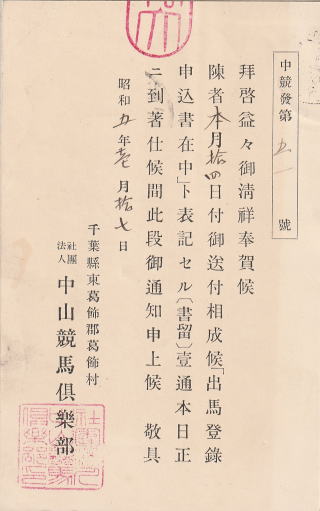 中競發第五一號
拜啓益々御淸祥奉賀候
陳者本月拾四日付御送付相成候「出馬登錄
申込書在中」ト表記セル〔書留〕壹通本日正
ニ到著仕候間此段御通知申上候 敬具
昭和五年壱月拾七日
千葉縣東葛飾郡葛飾村
社團法人 中山競馬倶樂部